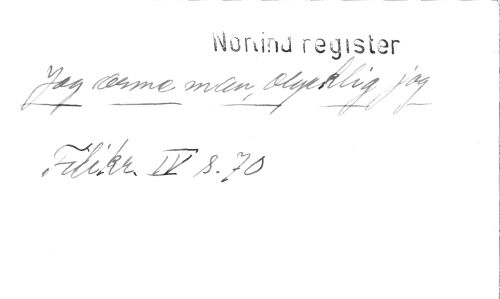 Norlind register
Jag arme man, olycklig jag
Filikr. IV s. 70